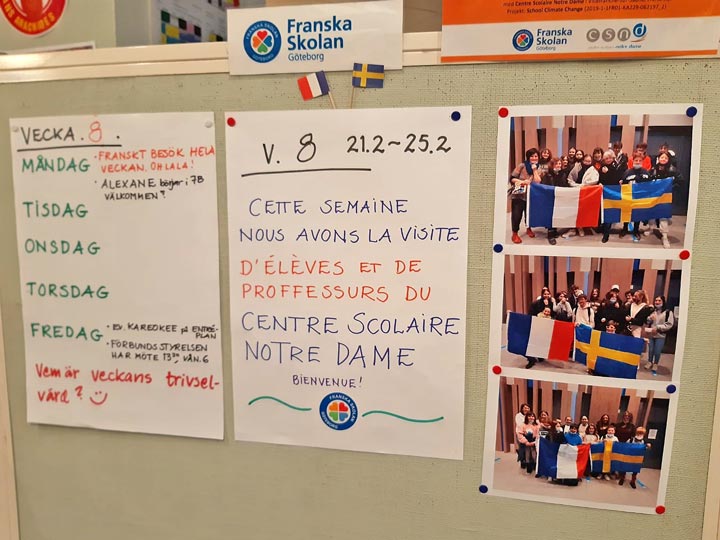 Franska
Skolan
Göteborg
med Centre Scolaire Notre Dame
Projekt: School Climate Change (2019-1-FR01-KA229-062197_1)
Franska
Skolan
Göteborg
csnd
centre scolaire notre dame
VECKA. 8.
MÅNDAG • FRANSKT BESÖK HELA
VECKAN. OH LALA!
• ALEXANE börjar i 7B
VÄLKOMMEN!
TISDAG
ONSDAG
TORSDAG
FREDAG • EV. KAREOKEE på ENTRÉ-
PLAN
• FÖRBUNDSSTYRELSEN
HAR MÖTE 13 30 VÅN. 6
Vem är veckans trivsel-
värd?
V. 8 21.2~25.2
CETTE SEMAINE
NOUS AVONS LA VISITE
D'ÉLÈVES ET DE
PROFFESSURS DU
CENTRE SCOLAIRE
NOTRE DAME
BIENVENUE!
FRANSKA SKOLAN
GÖTEBORG